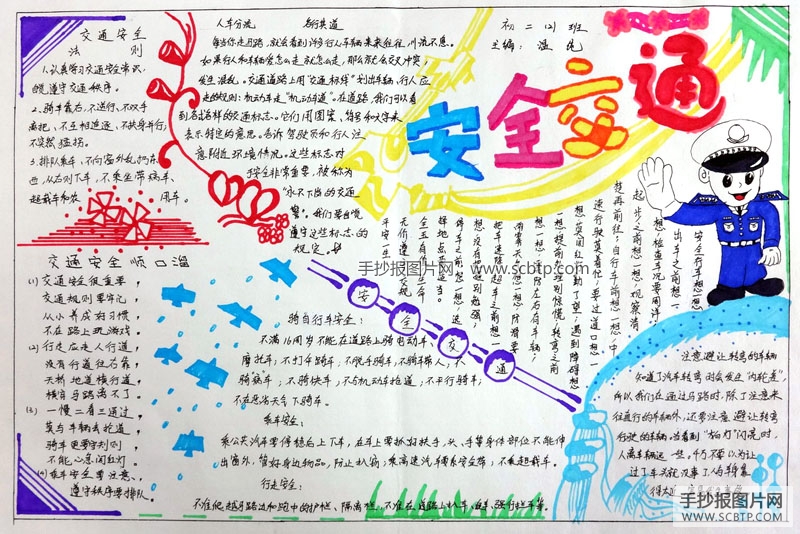 交通安全
法 则
1、认真学习交通安全常识,
自觉遵守交通秩序。
2、骑车靠右,不逆行、不双手
离把、不互相追逐、不扶身并行,
不突然猛拐。
3、排队乘车、不向窗外乱扔东
西,从右侧下车,不乘坐带病车、
超载车和农用车。
人车分流 各行其道
每当你走马路,就会看到许多行人车辆来来往往,川流不息。
如果行人和车辆爱怎么走就怎么走,那么就会发生冲突,
发生混乱。交通道路上用“交通标线”划出车辆、行人应
走的规则:机动车走“机动车道”。在道路,我们可以看
到各式各样的交通标志。它们用图案、符号和文字来
表示特定的意思。告诉驾驶员和行人注
意附近环境情况。这些标志对
于安全非常重要,被称为
“永不下岗的交通
警”。我们要自觉
遵守这些标志的
规定。
初二(2)班
主编:
安全交通
安全行车想一想
出车之前想一想,
想一想检查车况要周详;
起步之前想一想,观察清
楚再前往;自行车前想一想,中
速行驶莫着忙;要过道口想一
想,莫闯红灯勤了望;遇到障碍想
一想,提前处理别惊慌;转弯之前
想一想,需防左右有车辆;
雨雾天气想一想,防滑要
把车速降;超车之前想一
想,没有把握别勉强;
停车之前想一想,选
择地点要适当。
交通安全顺口溜
(1) 交通安全很重要,
交通规则要牢记,
从小养成好习惯,
不在路上玩游戏。
(2) 行走应走人行道,
没有行道往右靠,
天桥地道横行道,
横穿马路离不了。
(3) 一慢二看三通过,
莫与车辆去抢道,
骑车更要守规则,
不能心急闯红灯。
(4) 乘车安全要注意,
遵守秩序要排队,
手抄报图片网 www.scbtp.com
安
全
交
通
骑自行车安全:
不满16周岁不能在道路上骑电动车、
摩托车;不打伞骑车;不脱手骑车;不骑车带人;不
骑“病”车;不骑快车;不与机动车抢道;不平行骑车;
不在恶劣天气下骑车。
乘车安全:
乘公共汽车要停稳后上下车,在车上要抓好扶手,头、手等身体部位不能伸
出窗外,管好身边物品,防止扒窃;乘高速汽车要系安全带;不乘超载车。
行走安全:
不准爬越马路边和路中的护栏、隔离栏,不准在道路上扒车、追车、强行拦车等。
注意避让转弯的车辆
知道了汽车转弯时会发生“内轮差”,
所以我们在通过马路时,除了注意来
往直行的车辆外,还要注意避让转弯
行驶的车辆。当看到“拐灯”闪亮时,
人离车辆远一些。千万不要以为让
过了车头就没事了
手抄报图片网
WWW.SCBTP.COM